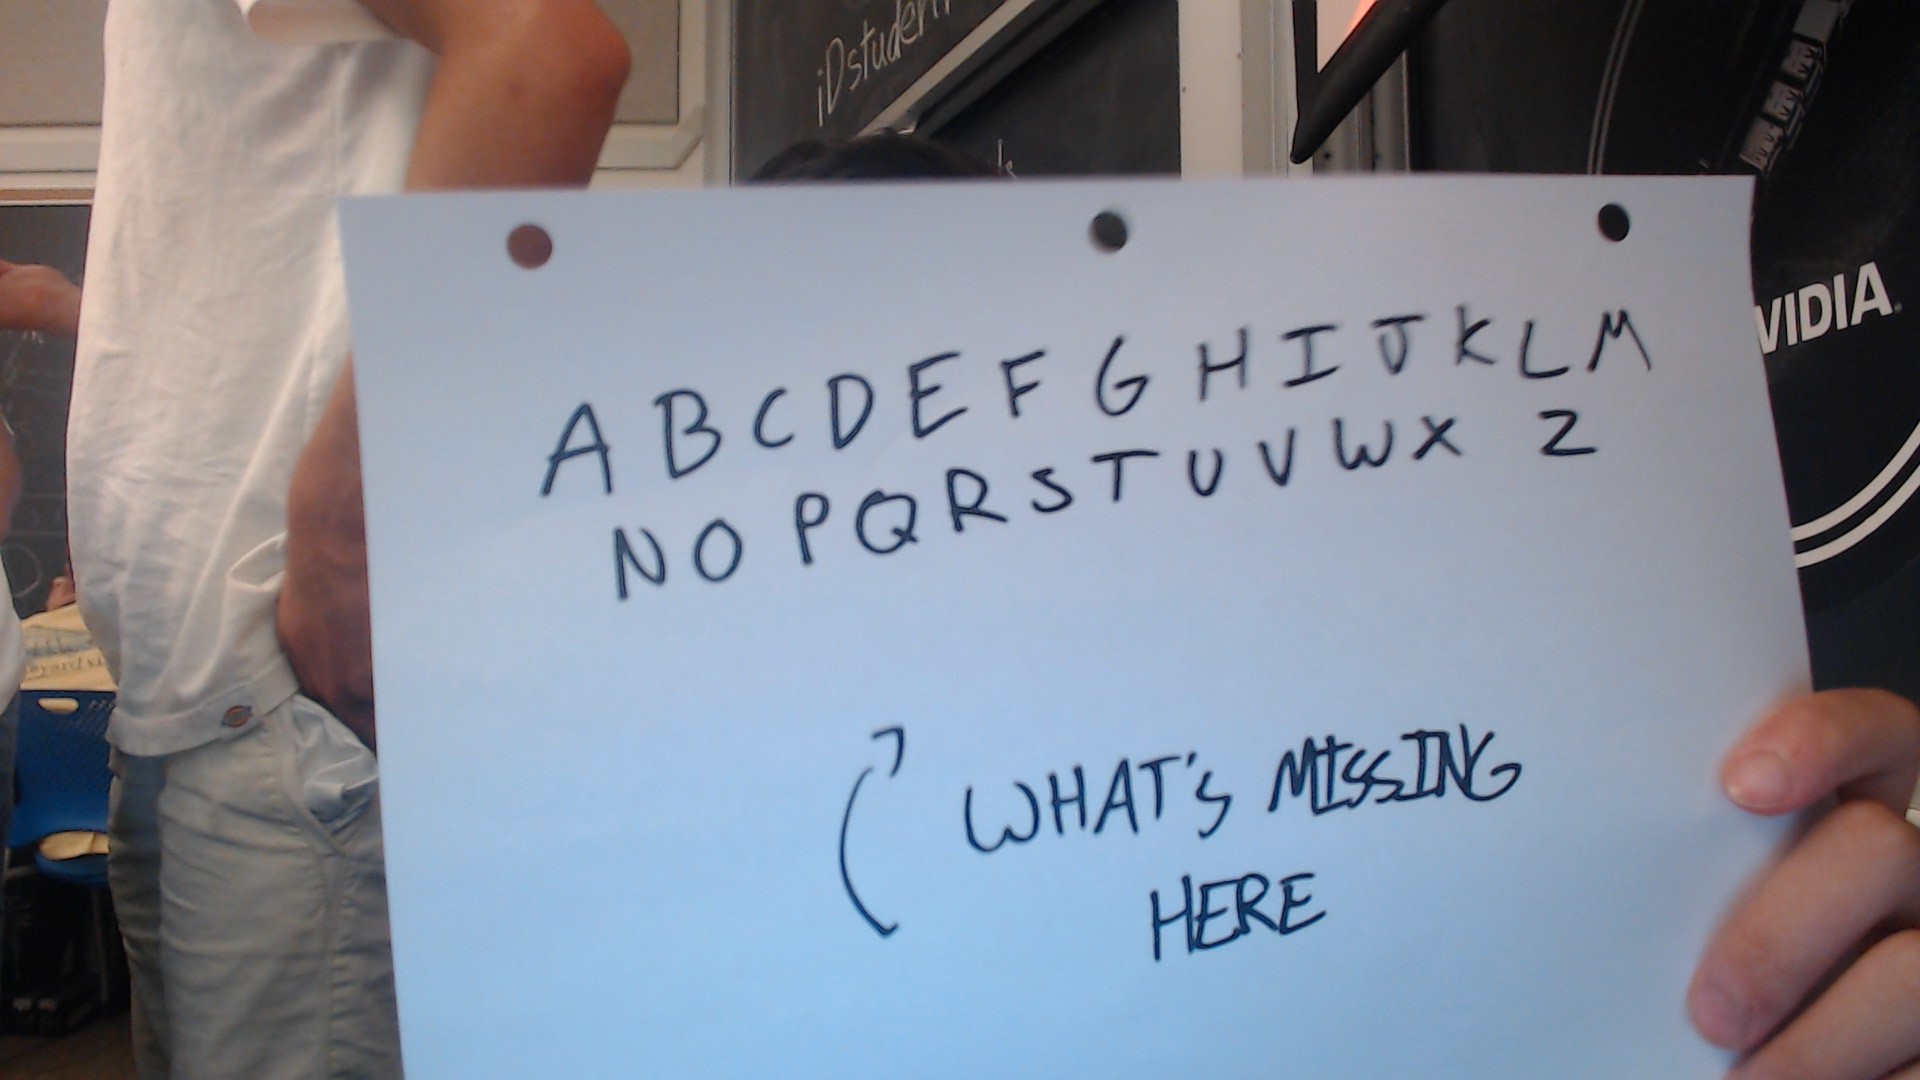 iDstuden
VIDIA
A B C D E F G H I J K L M
N O P Q R S T U V W X Z
WHAT'S MISSING
HERE